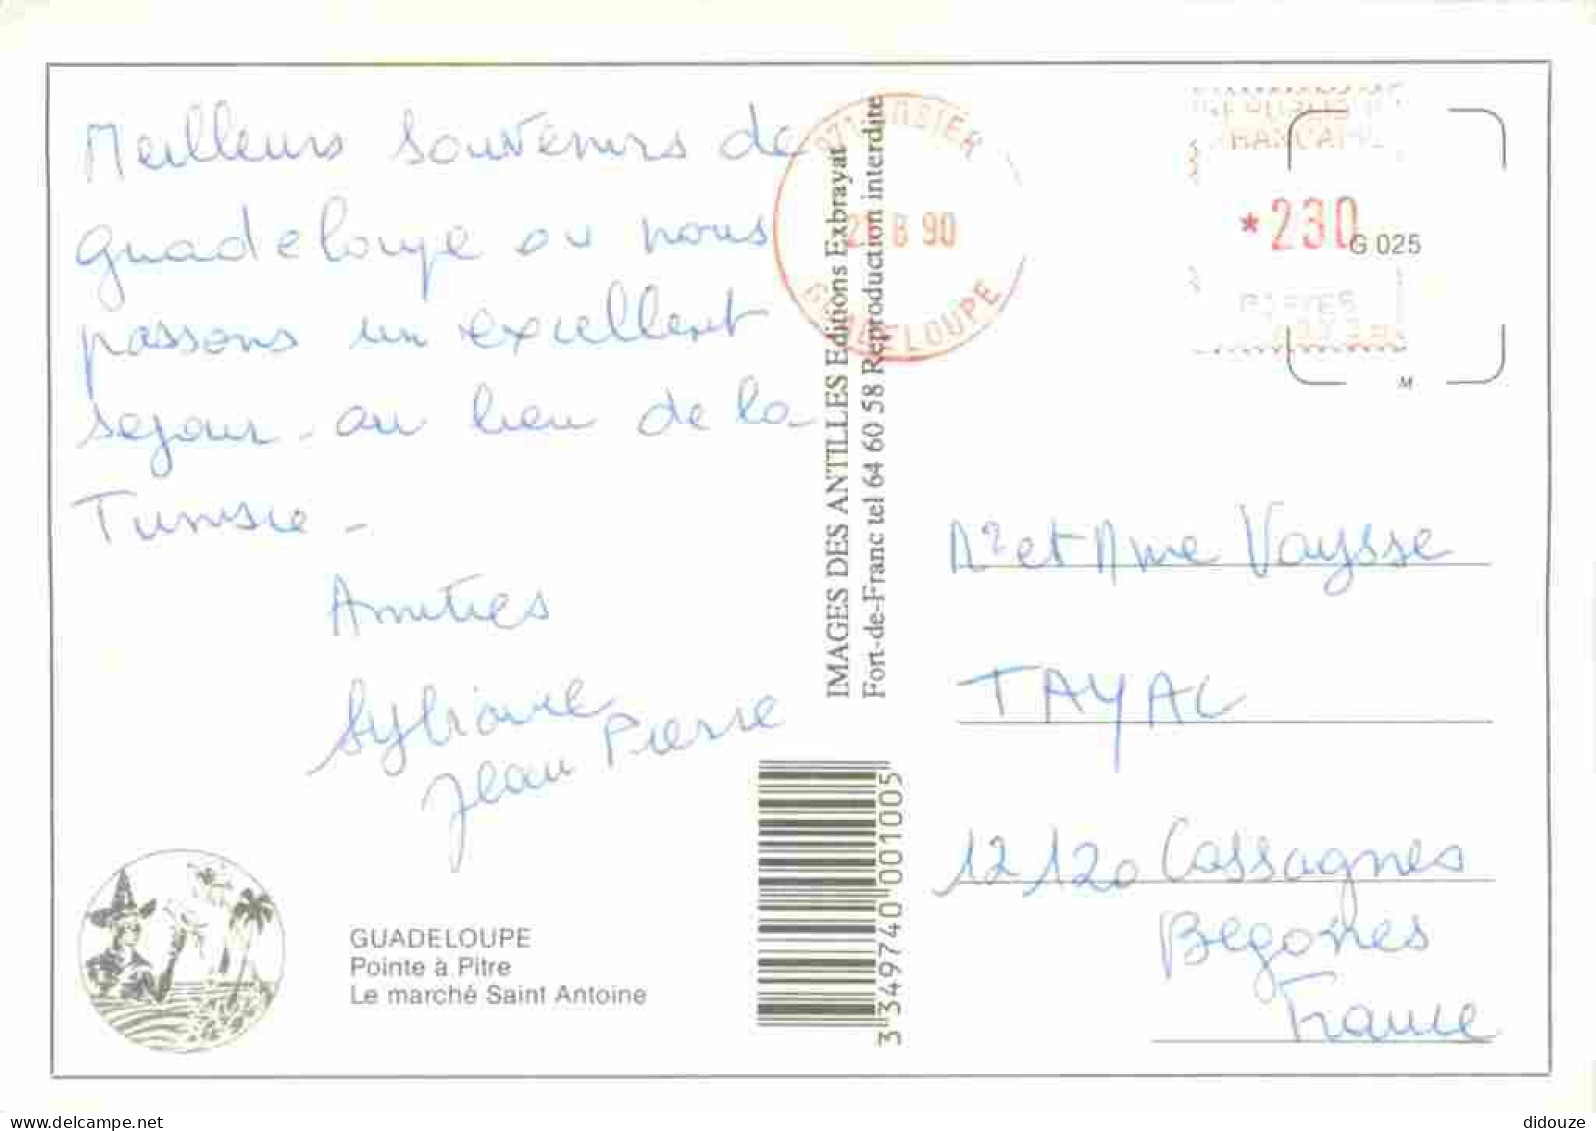 Meilleurs souvenirs de
guadeloupe ou nous
passons un excellent
sejour - au lieu de la
Tunisie -
Amities
Sylviane
Jean Pierre
GUADELOUPE
Pointe à Pitre
Le marché Saint Antoine
IMAGES DES ANTILLES Editions Exbrayat
Fort-de-Franc tel 64 60 58 Reproduction interdite
3 349740 001005
90
GUADELOUPE
*230
G 025
POSTES
M
Mr et Mme Vaysse
TAYAC
12120 Cassagnes
Begones
France
www.delcampe.net
didouze